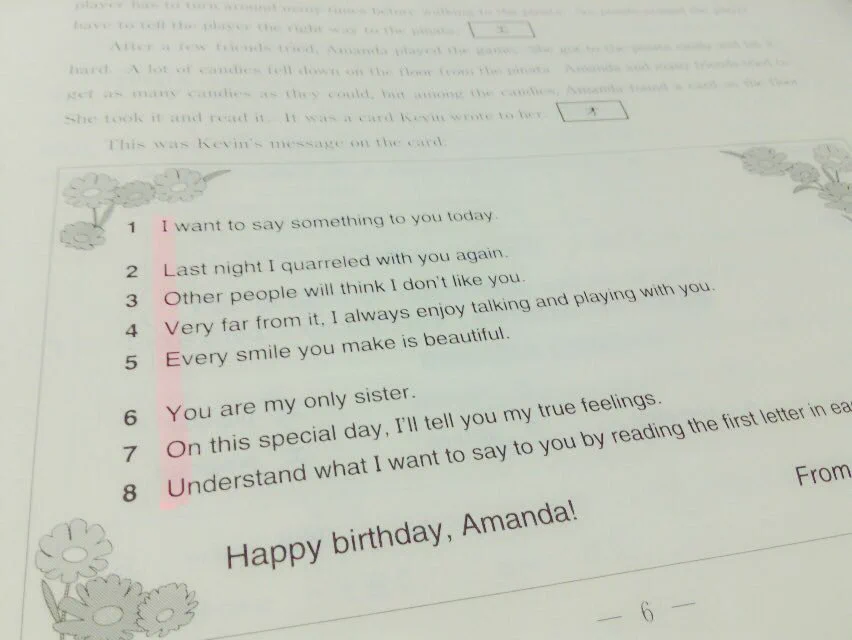 player has to turn around many times before walking to the piñata.
have to tell the player the right way to the piñata.
After a few friends tried, Amanda played the game. She got to the piñata easily and hit it
hard. A lot of candies fell down on the floor from the piñata. Amanda and many friends tried to
get as many candies as they could, but among the candies, Amanda found a card on the floor.
She took it and read it. It was a card Kevin wrote to her.
This was Kevin's message on the card.
1 I want to say something to you today.
2 Last night I quarreled with you again.
3 Other people will think I don't like you.
4 Very far from it, I always enjoy talking and playing with you.
5 Every smile you make is beautiful.
6 You are my only sister.
7 On this special day, I'll tell you my true feelings.
8 Understand what I want to say to you by reading the first letter in ea
From
Happy birthday, Amanda!
— 6 —